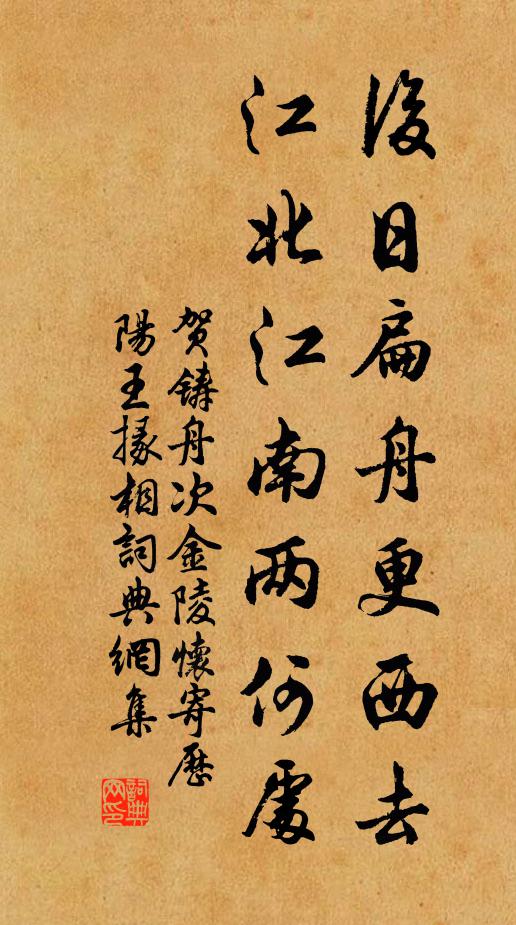 後日扁舟更西去
江北江南两何處
贺鑄舟次金陵懷寄歷
陽王掾相詞典網集
詞典网印